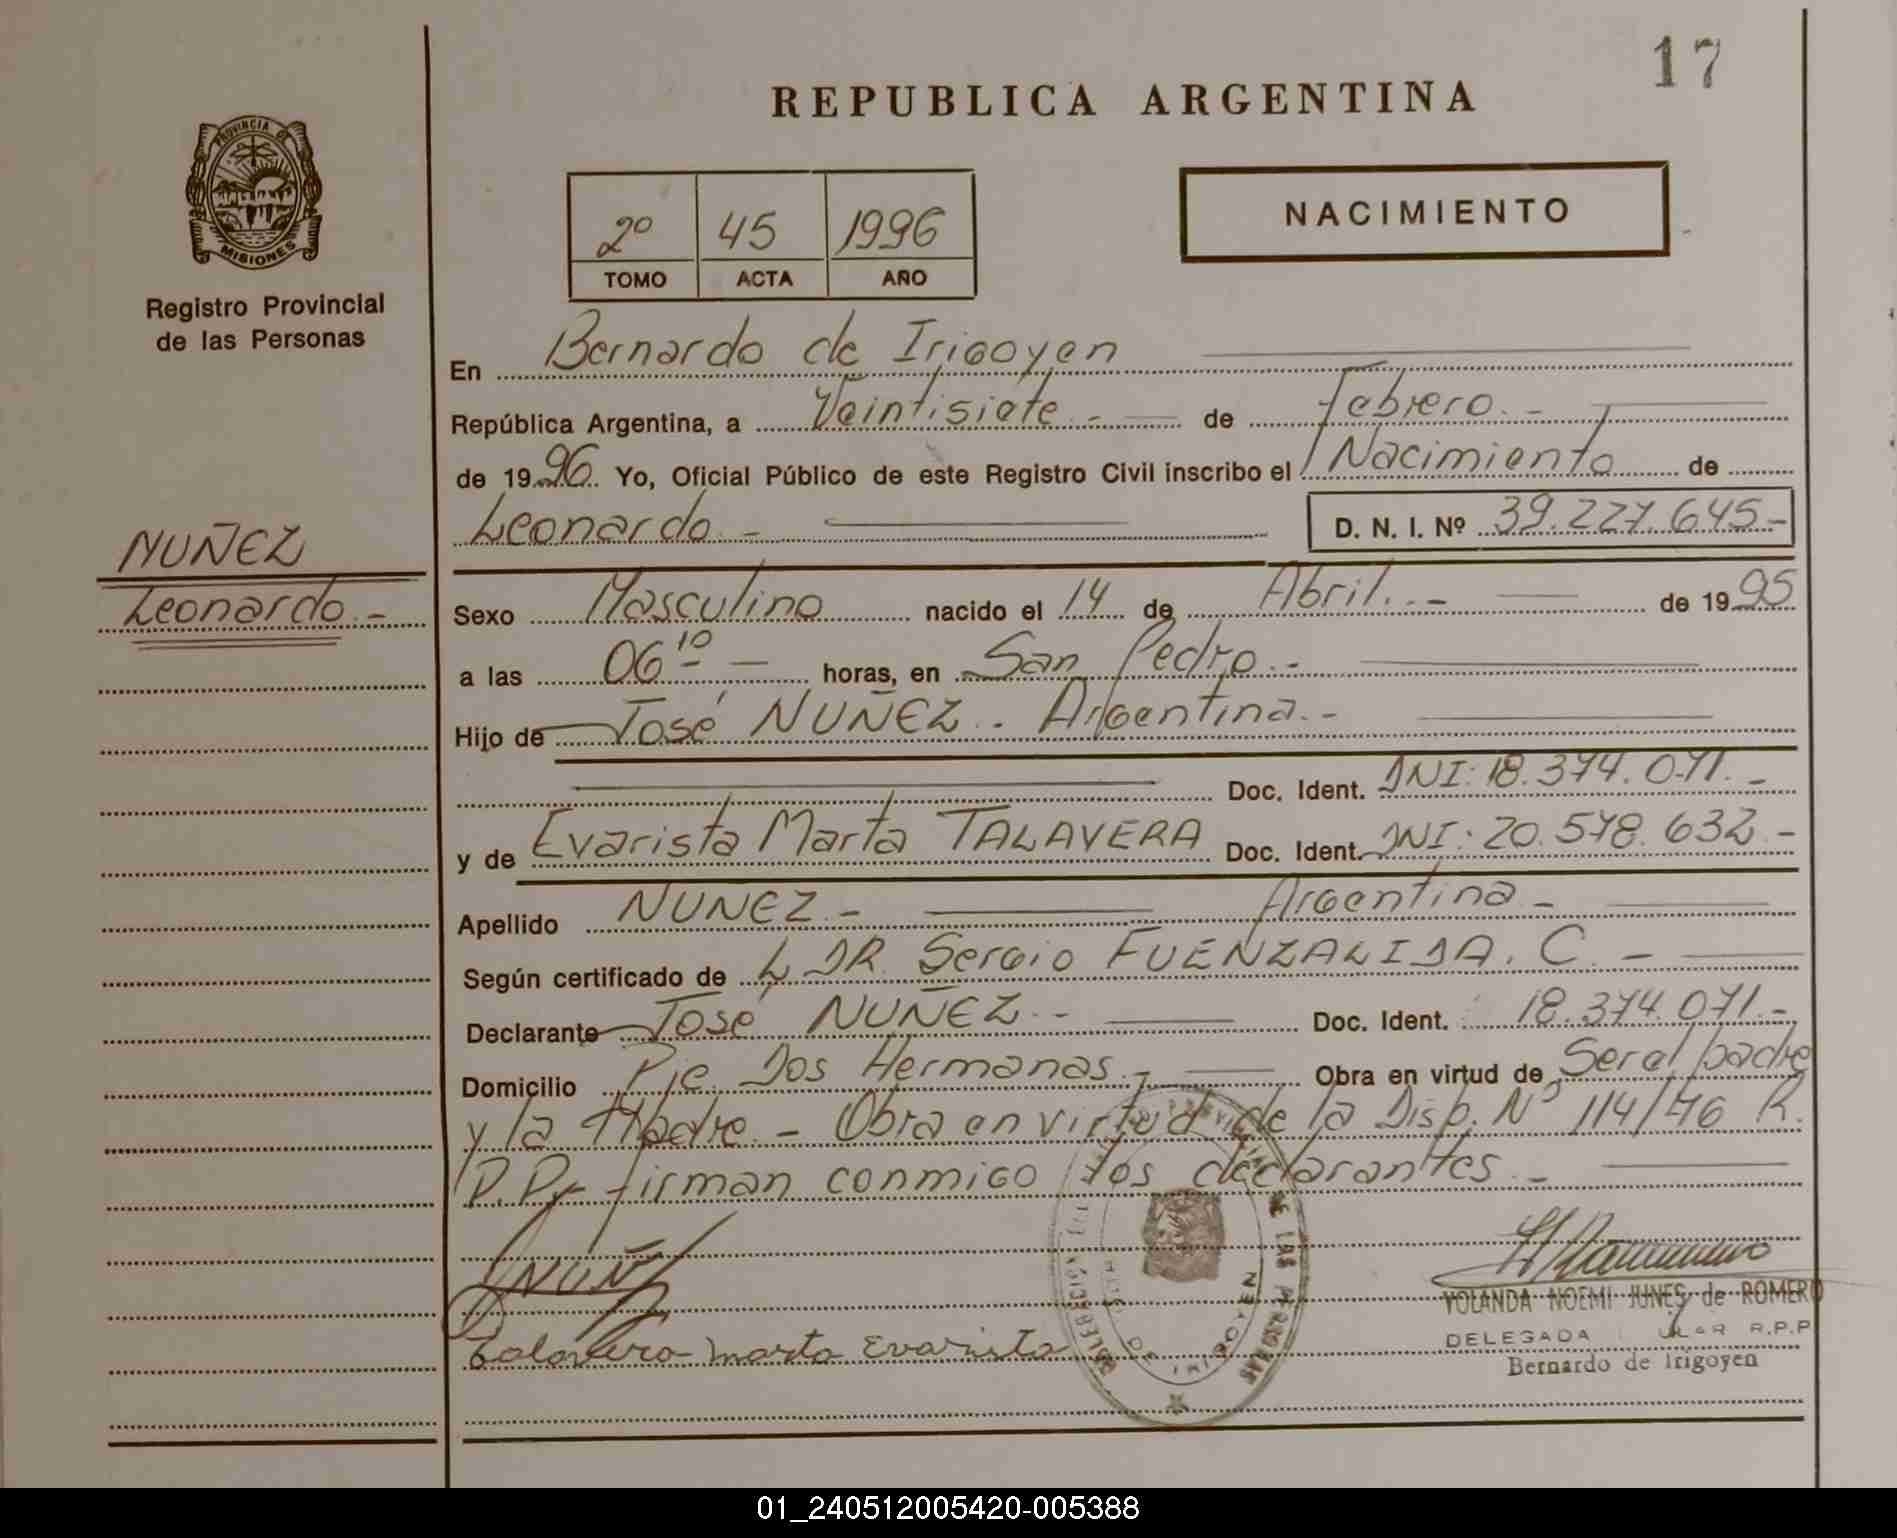 17
REPUBLICA ARGENTINA
PROVINCIA DE
MISIONES
Registro Provincial
de las Personas
2º 45 1996
TOMO ACTA AÑO
NACIMIENTO
En Bernardo de Irigoyen
República Argentina, a Veintisiete.- de Febrero.-
de 1996. Yo, Oficial Público de este Registro Civil inscribo el Nacimiento de
Leonardo.- D. N. I. Nº 39.227.645-
NUÑEZ
Leonardo.-
Sexo Masculino nacido el 14 de Abril.- de 1995
a las 06 10 - horas, en San Pedro.-
Hijo de José NUÑEZ. Argentina.-
Doc. Ident. DNI: 18.374.071.-
y de Evarista Marta TALAVERA Doc. Ident. DNI: 20.578.632.-
Apellido NUNEZ.- Argentina-
Según certificado de DR. Sergio FUENZALIDA. C.-
Declarante José NUÑEZ.- Doc. Ident. 18.374.071.-
Domicilio Pje. Dos Hermanas.- Obra en virtud de Ser el padre
y la Madre.- Obra en virtud de la Disp. Nº 114/76 R.
P.P. firman conmigo los declarantes.-
NUÑ
Talavera Marta Evarista
DE LAS PERSONAS
DE IRIGOYEN
YOLANDA NOEMI JUNES de ROMERO
DELEGADA R.P.P
Bernardo de Irigoyen
01_240512005420-005388